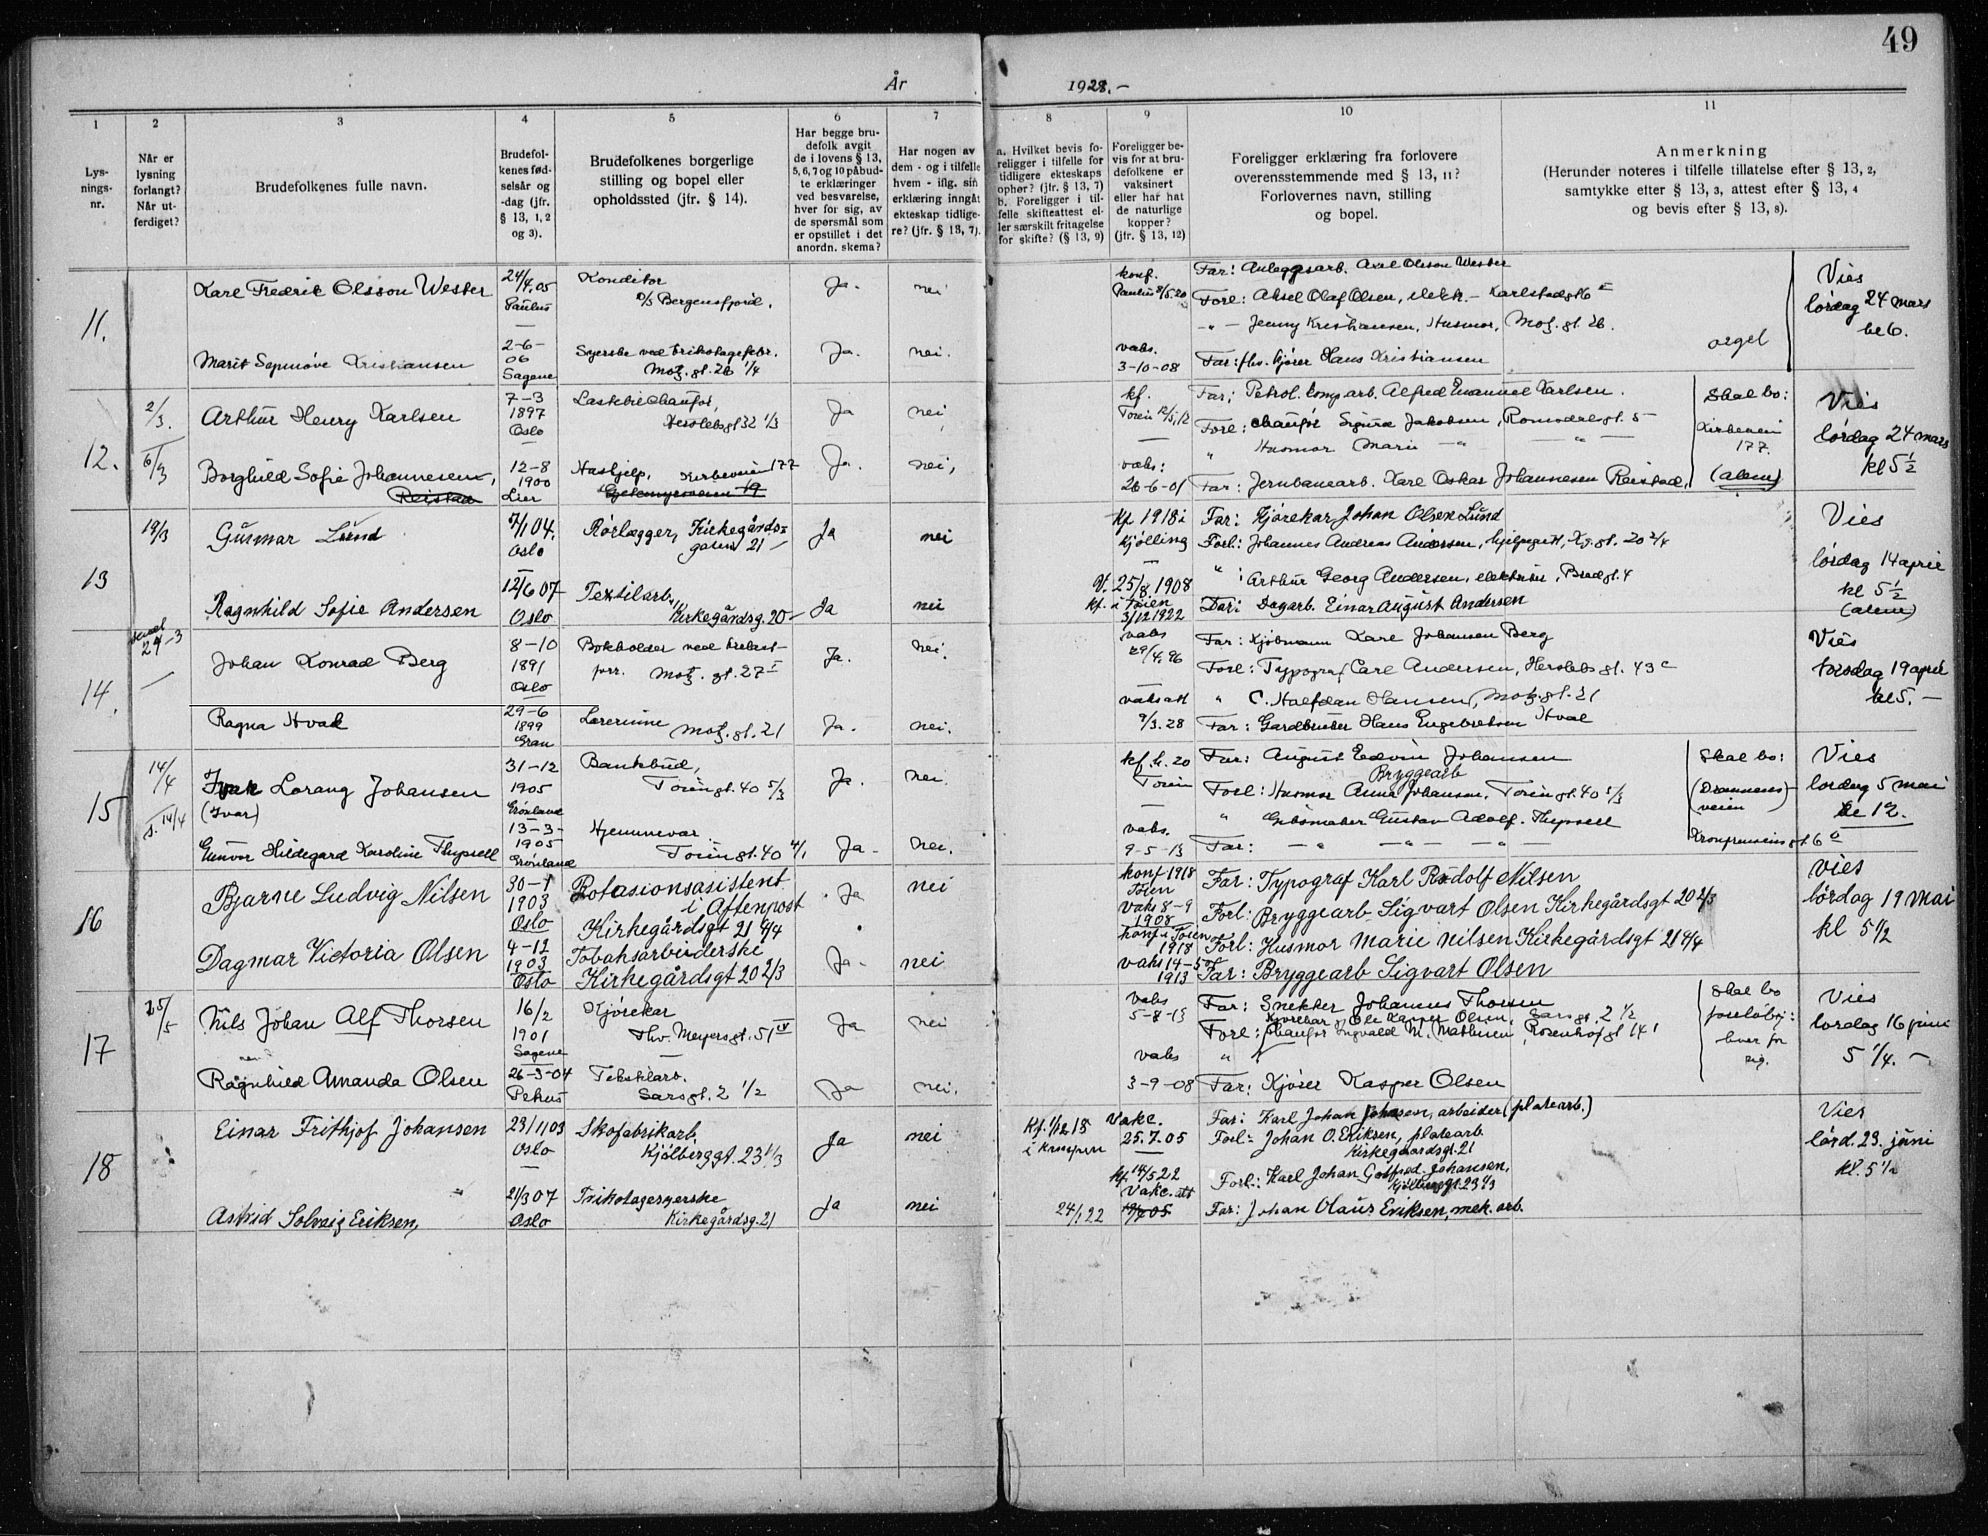 49
År 1928.-
1 2 3 4 5 6 7 8 9 10 11
Lys-
nings-
nr.
Når er
lysning
forlangt?
Når ut-
ferdiget?
Brudefolkenes fulle navn.
Brudefol-
kenes fød-
selsår og
-dag (jfr.
§ 13, 1, 2
og 3).
Brudefolkenes borgerlige
stilling og bopel eller
opholdssted (jfr. § 14).
Har begge bru-
defolk avgit
de i lovens § 13,
5, 6, 7 og 10 påbud-
te erklæringer
ved besvarelse,
hver for sig, av
de spørsmål som
er opstillet i det
anordn. skema?
Har nogen av
dem - og i tilfelle
hvem - iflg. sin
erklæring inngåt
ekteskap tidlige-
re? (jfr. § 13, 7).
a. Hvilket bevis fo-
religger i tilfelle for
tidligere ekteskaps
ophør? (jfr. § 13, 7)
b. Foreligger i til-
felle skifteattest el-
ler særskilt fritagelse
for skifte? (§ 13, 9)
Foreligger be-
vis for at bru-
defolkene er
vaksinert
eller har hat
de naturlige
kopper?
(jfr. § 13, 12)
Foreligger erklæring fra forlovere
overensstemmende med § 13, 11?
Forlovernes navn, stilling
og bopel.
Anmerkning
(Herunder noteres i tilfelle tillatelse efter § 13, 2,
samtykke efter § 13, 3, attest efter § 13, 4
og bevis efter § 13, 8).
11.
Karl Fredrik Olsson Wester
24/4.05
Paulus
Konditor
D/S Bergensfjord.
Ja. nei
konf.
Paulus 8/5.20
Far: Anleggsarb. Axel Olsson Wester
Forl: Aksel Olaf Olsen, elektr. - Karlstadgt 6 II
-"- Jenny Kristiansen, Husmor, Motz. gt. 26.
Vies
lördag 24 mars
kl 6.
orgel
Kristiansen
2-6-
06
Sagene
Syerske ved trikotagefabr.
Motz. gt. 26 1/4
Ja. nei.
vaks.
3-10-08
Far: fhv. kjører Hans Kristiansen
12.
2/3.
6/3
Arthur Henry Karlsen
7-3
1897
Oslo
Lastebilchaufør,
Herslebsgt 32 1/3
Ja nei
kf.
Toien 12/5, 12
Far: Petrol. komp. arb. Alfred Emanuel Karlsen.
Forl: chaufør Sigurd Jakobsen, Romsdalsgt. 5
" Husmor Marie -"- -"-
Skal bo:
Kirkeveien
177.
(alene)
Vies
lördag 24 mars
kl 5½
Borghild Sofie Johannesen,
Reistad
12-8
1900
Lier
Hushjelp, Kirkeveien 177
Ja. nei,
vaks:
26-6-01
Far: Jernbanearb. Karl Oskar Johannesen Reistad.
13
19/3
Gunnar Lund
7/1 04.
Oslo
Rørlægger, Kirkegårds-
gaten 21
Ja nei
Kf 1918 i
Kjølling
Far: Kjørekar Johan Olsen Lund
Forl: Johannes Andreas Andersen, hjelpegutt, Kg. gt. 20 2/4
" : Arthur Georg Andersen, elektriker, Bredgt. 4
Vies
lördag 14 april
kl 5½
(alene)
Ragnhild Sofie Andersen
12/6 07
Oslo
Textilarb.
Kirkegårdsg. 20
Ja nei
25/8. 1908
kf. i Tøien
3/12 1922
Far: Dagarb. Einar August Andersen
14.
24-3
Johan Konrad Berg
8-10
1891
Oslo
Bokholder ved
Motz. gt. 27 I
Ja. nei.
vaks
29/4. 96
Far: Kjøbmann Karl Johansen Berg
Forl: Typograf Carl Andersen, Herslebs gt. 43 c
" C. Halfdan Hansen, Motz. gt. 21
Vies
torsdag 19 april
kl 5. -
Ragna Hval
29-6
1899
Gran
Lærerinne
Motz. gt. 21
Ja. nei.
vaks att
9/3. 28
Far: Gardbruker Hans Engebretsen Hval
15
14/4
s. 14/4
Ivar Lorang Johansen
(Ivar)
31-12
1905
Grönland
Bankbud,
Toiengt. 40 5/3
Ja. nei.
20
Toien
Far: August Edvin Johansen
Bryggearb
Forl: Husmor Anna Johansen, Toiengt. 40 5/3
" Gibsmaker Gustav Adolf. Thyssell
Skal bo:
(Drammens-
veien)
Kronprinsens gt. 6
Vies
lordag 5 mai
kl 12.
Gunvor Hildegard Karoline Thyssell
13-3-
1905
Grönland
Hjemmevær.
Toiengt. 40 4/1
Ja- nei.
vaks.
9-5-13
Far: -"- -"- -"-
16
Bjarne Ludvig Nilsen
30-1
1903
Oslo
Rotasionsasistent
i Aftenpost
Kirkegårdsgt 21 4/4
Ja nei
konf 1918
Töien
vaks 8-9
1908
Far: Typograf Karl Rudolf Nilsen
Forl: Bryggearb Sigvart Olsen Kirkegårdsgt 20 2/3
Vies
lördag 19 Mai
kl 5½
Dagmar Victoria Olsen
4-12
1903
Oslo
Tobaksarbeiderske
Kirkegårdsgt 20 2/3
Ja- nei
konf i Töien
1918
vaks 14-5
1913
Forl: Husmor Marie Nilsen Kirkegårdsgt 21 4/4
Far: Bryggearb Sigvart Olsen
17
25/5
Nils Johan Alf Thorsen
16/2
1901
Sagene
Kjørekar
Thv. Meyersgt. 51 IV
Ja nei
vaks
5-8-13
Far: Snekker Johannes Thorsen
Kjørekar Ole Kasper Olsen, Sarsgt. 2 1/2
Forl: chaufør Ingvald M. Mathisen, Rosenhofgt 14 1
Skal bo
foreløbig:
hver for
sig.
Vies
lordag 16 juni
5 1/4. -
Ragnhild Amanda Olsen
26-3-04
Petrus
Tekstilarb.
Sarsgt. 2 1/2
Ja nei.
vaks "
3-9-08
Far: Kjører Kasper Olsen
18
Einar Frithjof Johansen
23/1 03
Oslo
Skofabrikarb.
Kjölberggt. 23 1/3
Ja nei
Kf. 1/12 18
i Kampen
Vakc.
25.7.05
Far: Karl Johan Johansen, arbeider (platearb.)
Forl: Johan O. Eriksen, platearb.
Kirkegaardsgt. 21
Forl: Karl Johan Gotfred Johansen,
Kjölberggt. 23 1/3
Vies
lörd. 23. juni
kl. 5½
Astrid Solveig Eriksen,
21/3 07
Oslo
Trikotagesyerske
Kirkegårdsg. 21
Ja nei
24/1 22
kf. 14/5 22
Vakc. att
Far: Johan Olaus Eriksen, mek. arb.